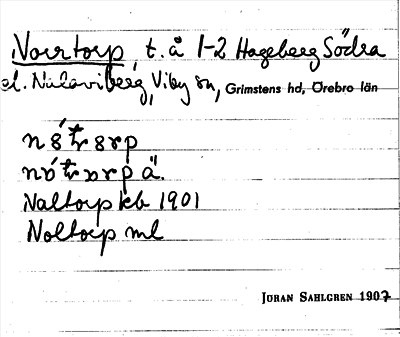 Norrtorp, t. å 1-2 Hageberg Södra
el. Nulaviberg, Viby sn, Grimstens hd, Örebro län
ä.
Naltorp kb 1901
Noltorp ml
JÖRAN SAHLGREN 1907